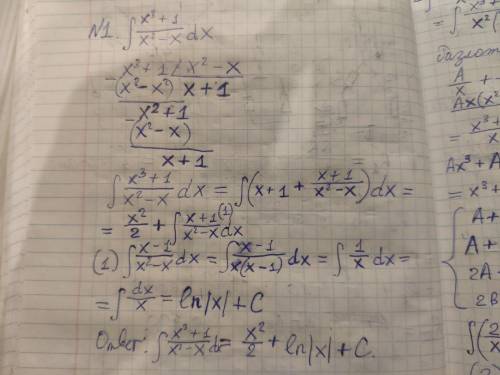 №1. ∫ x³+1 / x²-x dx
x³+1 | x²-x
-(x³-x²) x+1
x²+1
-(x²-x)
x+1
∫ x³+1 / x²-x dx = ∫(x+1 + x+1 / x²-x)dx =
= x²/2 + ∫ x+1 / x²-x dx (1)
(1) ∫ x-1 / x²-x dx = ∫ x-1 / x(x-1) dx = ∫ 1/x dx =
= ∫ dx/x = ln|x| + C
Ответ: ∫ x³+1 / x²-x dx = x²/2 + ln|x| + C.
= ∫ x³+1
A/x +
= x³+
Ax³ + A
= x³+
A+
A+
2A-
2B